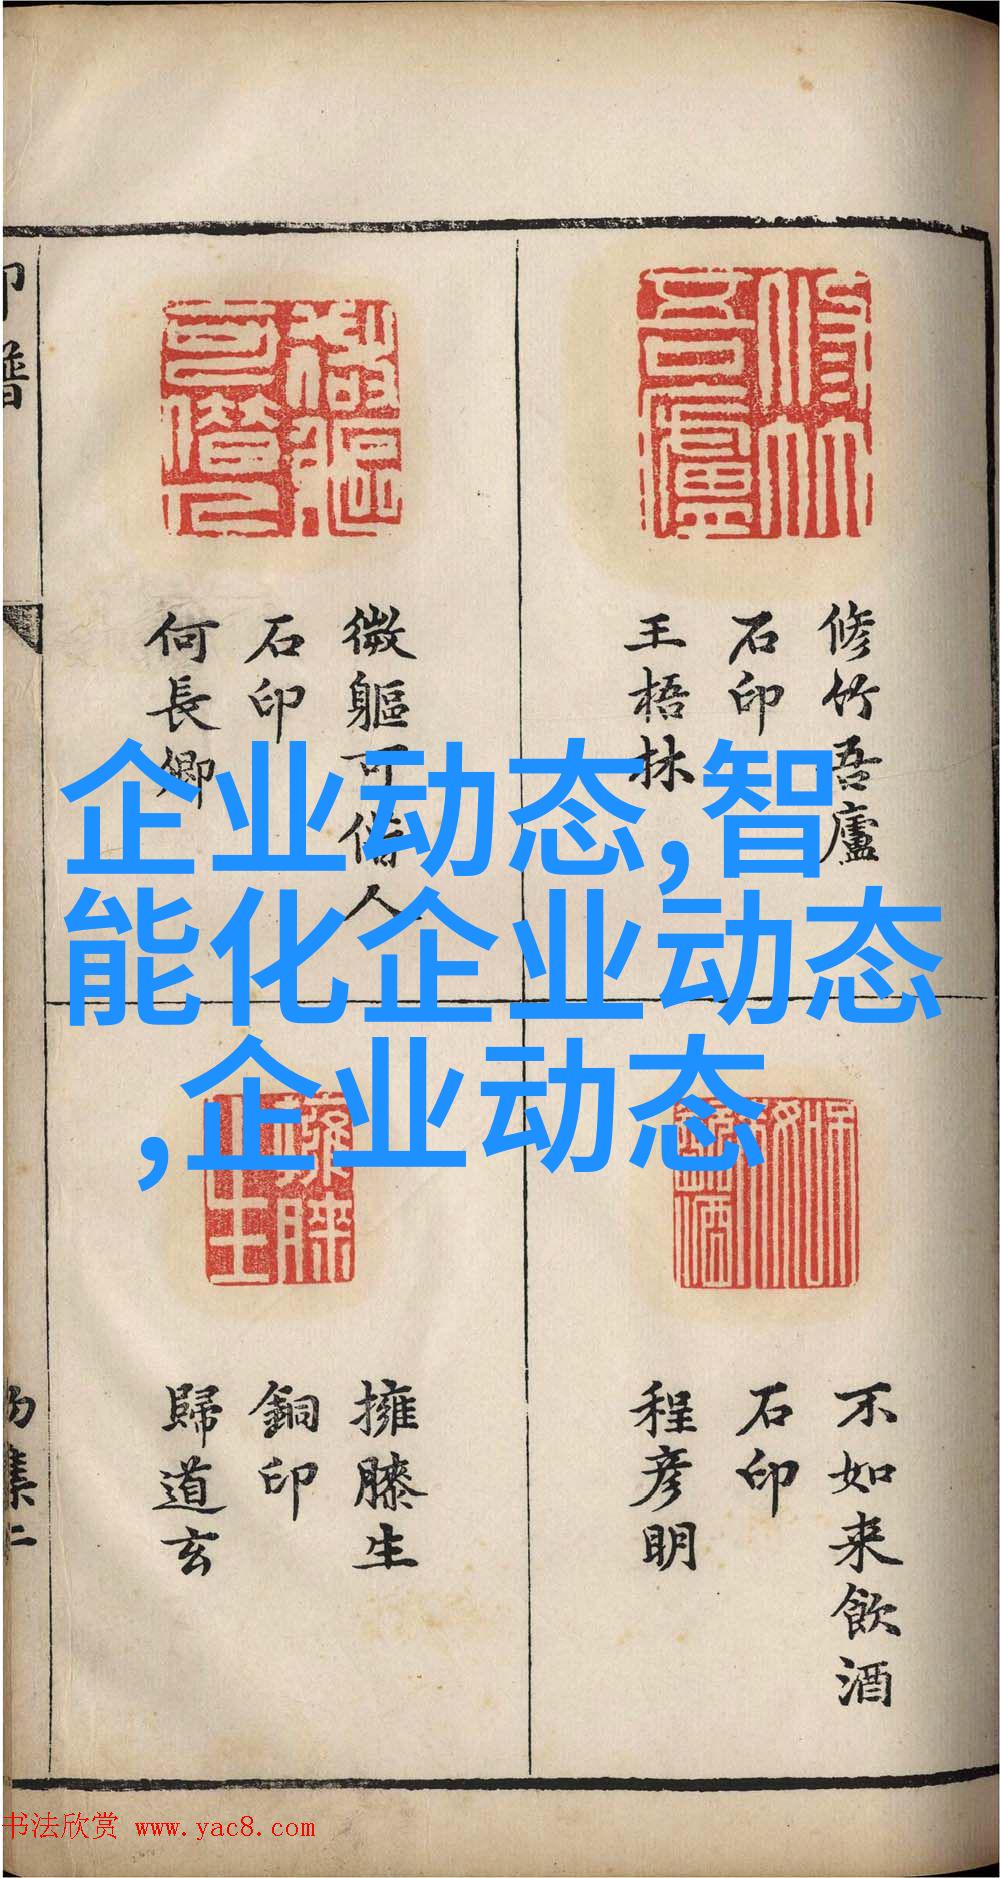 企业动态,智
能化企业动态
,企业动态
修竹吾廬
石印
王梧林
微軀可借人
石印
何長卿
不如来飲酒
石印
程彦明
擁膝生
銅印
歸道玄
印譜
书法欣赏 www.yac8.com